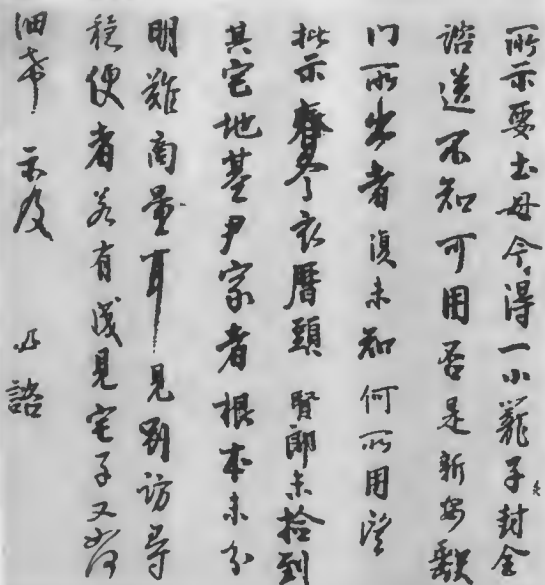 所示要土母今得一小籠子封全
諮送不知可用否是新安缺
門所出者復未知何所用望
批示春冬衣曆頭賢郎未檢到
其宅地基尹家者根本未分
明難商量耳見別訪尋
穩便者若有成見宅子又如何
細希示及 諮